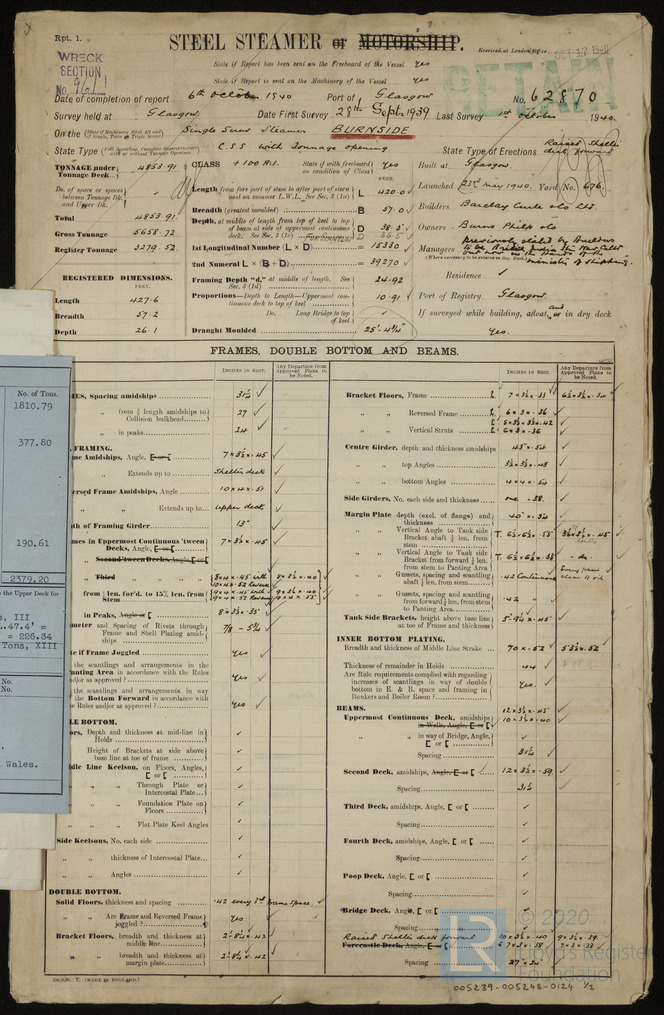 Rpt. 1.
STEEL STEAMER or MOTORSHIP.
Received at London Office OCT 17 1940
WRECK
SECTION
No. 961
RETAIN
State if Report has been sent on the Freeboard of the Vessel Yes
State if Report is sent on the Machinery of the Vessel Yes
Date of completion of report 6th October 1940 Port of Glasgow No. 62870
Survey held at Glasgow Date First Survey 28th Sept 1939 Last Survey 1st October 1940
On the Single Screw Steamer BURNSIDE
State Type C.S.S with Tonnage opening State Type of Erections Raised Shelter deck forward
TONNAGE under Tonnage Deck 4853.91
Do. of space or spaces between Tonnage Dk. and Upper Dk.
Total 4853.91
Gross Tonnage 5658.72
Register Tonnage 3279.52
REGISTERED DIMENSIONS.
FEET.
Length 427.6
Breadth 57.2
Depth 26.1
CLASS +100 A.1. State if with freeboard as condition of Class Yes
FEET.
Length from fore part of stem to after part of stern post on summer L.W.L. See Sec. 3 (1a) L 420.0
Breadth (greatest moulded) B 57.0
Depth, at middle of length from top of keel to top of beam at side of uppermost continuous deck. See Sec. 3 (1c) D 38.5
D 36.5
1st Longitudinal Number (L × D) = 15330
2nd Numeral L × (B + D) = 39270
Framing Depth "d," at middle of length. See Sec. 3 (1d) 24.92
Proportions—Depth to Length—Uppermost continuous deck to top of keel 10.91
Do. Long Bridge to top of keel
Draught Moulded 25'-4¾"
Built at Glasgow.
Launched 23rd May 1940. Yard No. 676.
Builders Barclay Curle & Co Ltd.
Owners Burns Philp & Co
Managers previously stated by Builders
(Where necessary to be entered in Reg. Book)
Ministry of Shipping.
Residence
Port of Registry Glasgow.
If surveyed while building, afloat, and or in dry dock
Yes.
FRAMES, DOUBLE BOTTOM AND BEAMS.
INCHES IN SHIP.
Any Departure from Approved Plans to be Noted.
INCHES IN SHIP.
Any Departure from Approved Plans to be Noted.
MES, Spacing amidships 31¼
" from ⅗ length amidships to Collision bulkhead 27
" in peaks 24
FRAMING.
me Amidships, Angle, [ or [ 7 × 3½ × .45
" Extends up to Shelter deck
ersed Frame Amidships, Angle 10 × 4 × .51
" Extends up to Upper deck
th of Framing Girder 13"
mes in Uppermost Continuous 'tween Decks, Angle, [ or [ 7 × 3½ × .45
" Second 'tween Decks, Angle, [ or [
" Third " "
from ⅗ len. for'd. to 15% len. from Stem
in Peaks, Angle or [ 8 × 3½ × .35
meter and Spacing of Rivets through Frame and Shell Plating amidships 7/8 - 5¾
te if Frame Joggled Yes
the scantlings and arrangements in the Panting Area in accordance with the Rules and/or as approved? Yes
the scantlings and arrangements in way the Bottom Forward in accordance with Rules and/or as approved? Yes
LE BOTTOM.
ors, Depth and thickness at mid-line in Holds
Height of Brackets at side above base line at toe of frame
dle Line Keelson, on Floors, Angles, [ or [
" " Through Plate or Intercostal Plate
" " Foundation Plate on Floors
" " Flat Plate Keel Angles
Side Keelsons, No. each side
" " thickness of Intercostal Plate
" " Angles
DOUBLE BOTTOM.
Solid Floors, thickness and spacing .42 every 3rd frame space.
" " Are Frame and Reversed Frame joggled? Yes
Bracket Floors, breadth and thickness at middle line 2'-8¼ × .42
" " breadth and thickness at margin plate 2'-8¼ × .42
Bracket Floors, Frame 7 × 3½ × .33
" " Reversed Frame 6 × 3 × .36
" " Vertical Struts 6 × 3 × .36
Centre Girder, depth and thickness amidships 45 × .54
" " top Angles 3½ × 3½ × .48
" " bottom Angles 4 × 4 × .54
Side Girders, No. each side and thickness one .38.
Margin Plate depth (excl. of flange) and thickness 40" × .54
" " Vertical Angle to Tank Side Bracket abaft ¼ len. from stem
" " Vertical Angle to Tank Side Bracket from forward ¼ len. from stem to Panting Area
" " Gussets, spacing and scantling abaft ¼ len. from stem .42 Continuous
" " Gussets, spacing and scantling from forward ¼ len. from stem to Panting Area .42 "
Tank Side Brackets, height above base line at toe of Frame and thickness
INNER BOTTOM PLATING.
Breadth and thickness of Middle Line Strake 70 × .52
Thickness of remainder in Holds .44
Are Rule requirements complied with regarding increases of scantlings in way of double bottom in E. & B. space and framing in Bunkers and Boiler Room? Yes.
BEAMS.
Uppermost Continuous Deck, amidships in Wells, Angle, [ or [ 12 × 3½ × .45
10 × 3½ × .40
" " in way of Bridge, Angle, [ or [
Spacing 31¼
Second Deck, amidships, Angle, [ or [ 12 × 3½ × .59
Spacing 31¼
Third Deck, amidships, Angle, [ or [
Spacing
Fourth Deck, amidships, Angle, [ or [
Spacing
Poop Deck, Angle, [ or [
Spacing
Bridge Deck, Angle, [ or [
Spacing
Raised Shelter deck forward 10 × 3½ × .40 9 × 3½ × .39
Forecastle Deck, Angle, [ or [ 7 × 3 × .38 7 × 3 × .33
Spacing 27" .24"
No. of Tons.
1810.79
377.80
190.61
2379.20
o the Upper Deck for
s, III
.47.4' =
= 226.34
Tons, XIII
No.
No.
Wales.
(MADE IN ENGLAND.)
LR
© 2020
Lloyd's Register
Foundation
005239-005248-0124 ½